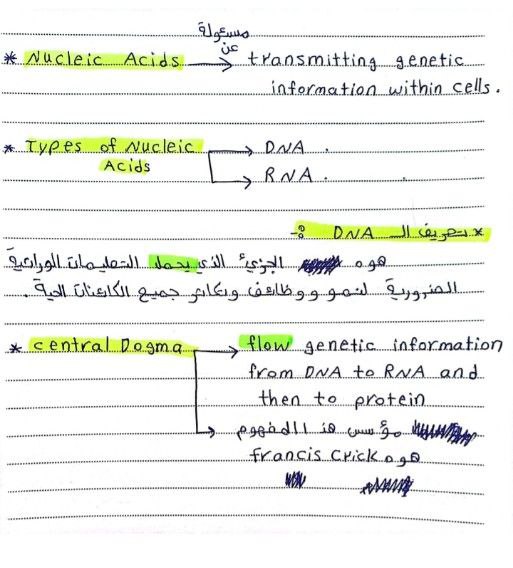 مسئولة
عن
* Nucleic Acids → transmitting genetic
information within cells.
* Types of Nucleic → DNA .
Acids → RNA .
* تعريف الـ DNA :-
هوه الجزيء الذي يحمل التعليمات الوراثية
الضرورية لنمو ووظائف وتكاثر جميع الكائنات الحية .
* central Dogma → flow genetic information
from DNA to RNA and
then to protein
→ مؤسس هذ المفهوم
هوه Francis Crick